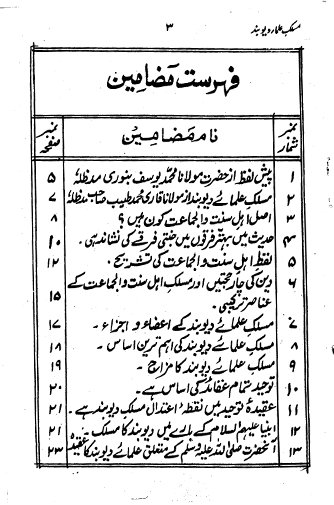 مسلک علماء دیوبند
۳
فہرست مضامین
نمبر شمار نام مضامین نمبر صفحہ
۱ پیش لفظ از حضرت مولانا محمد یوسف بنوری مدظلہٗ ۵
۲ مسلک علمائے دیوبند از مولانا قاری محمد طیب صاحب مدظلہٗ ۷
۳ اصل اہل سنت والجماعت کون ہیں؟ ۸
۴ حدیث میں بہتر فرقوں میں جنتی فرقے کی نشاندہی۔ ۱۰
۵ لفظ اہل سنت والجماعت کی تشریح۔ ۱۲
۶ دین کی چار حجتیں اور مسلک اہل سنت والجماعت کے
عناصر ترکیبی۔ ۱۵
۷ مسلک علمائے دیوبند کے اعضاء و اجزاء۔ ۱۷
۸ مسلک علمائے دیوبند کی اہم ترین اساس۔ ۱۸
۹ مسلک علمائے دیوبند کا مزاج۔ ۱۹
۱۰ توحید تمام عقائد کی اساس ہے۔ ۲۰
۱۱ عقیدۂ توحید میں نقطۂ اعتدال مسلک دیوبند ہے۔ ۲۱
۱۲ انبیاء علیہم السلام کے بارے میں دیوبند کا مسلک۔ ۲۱
۱۳ آنحضرت صلی اللہ علیہ وسلم کے متعلق علمائے دیوبند کا عقیدہ ۲۳